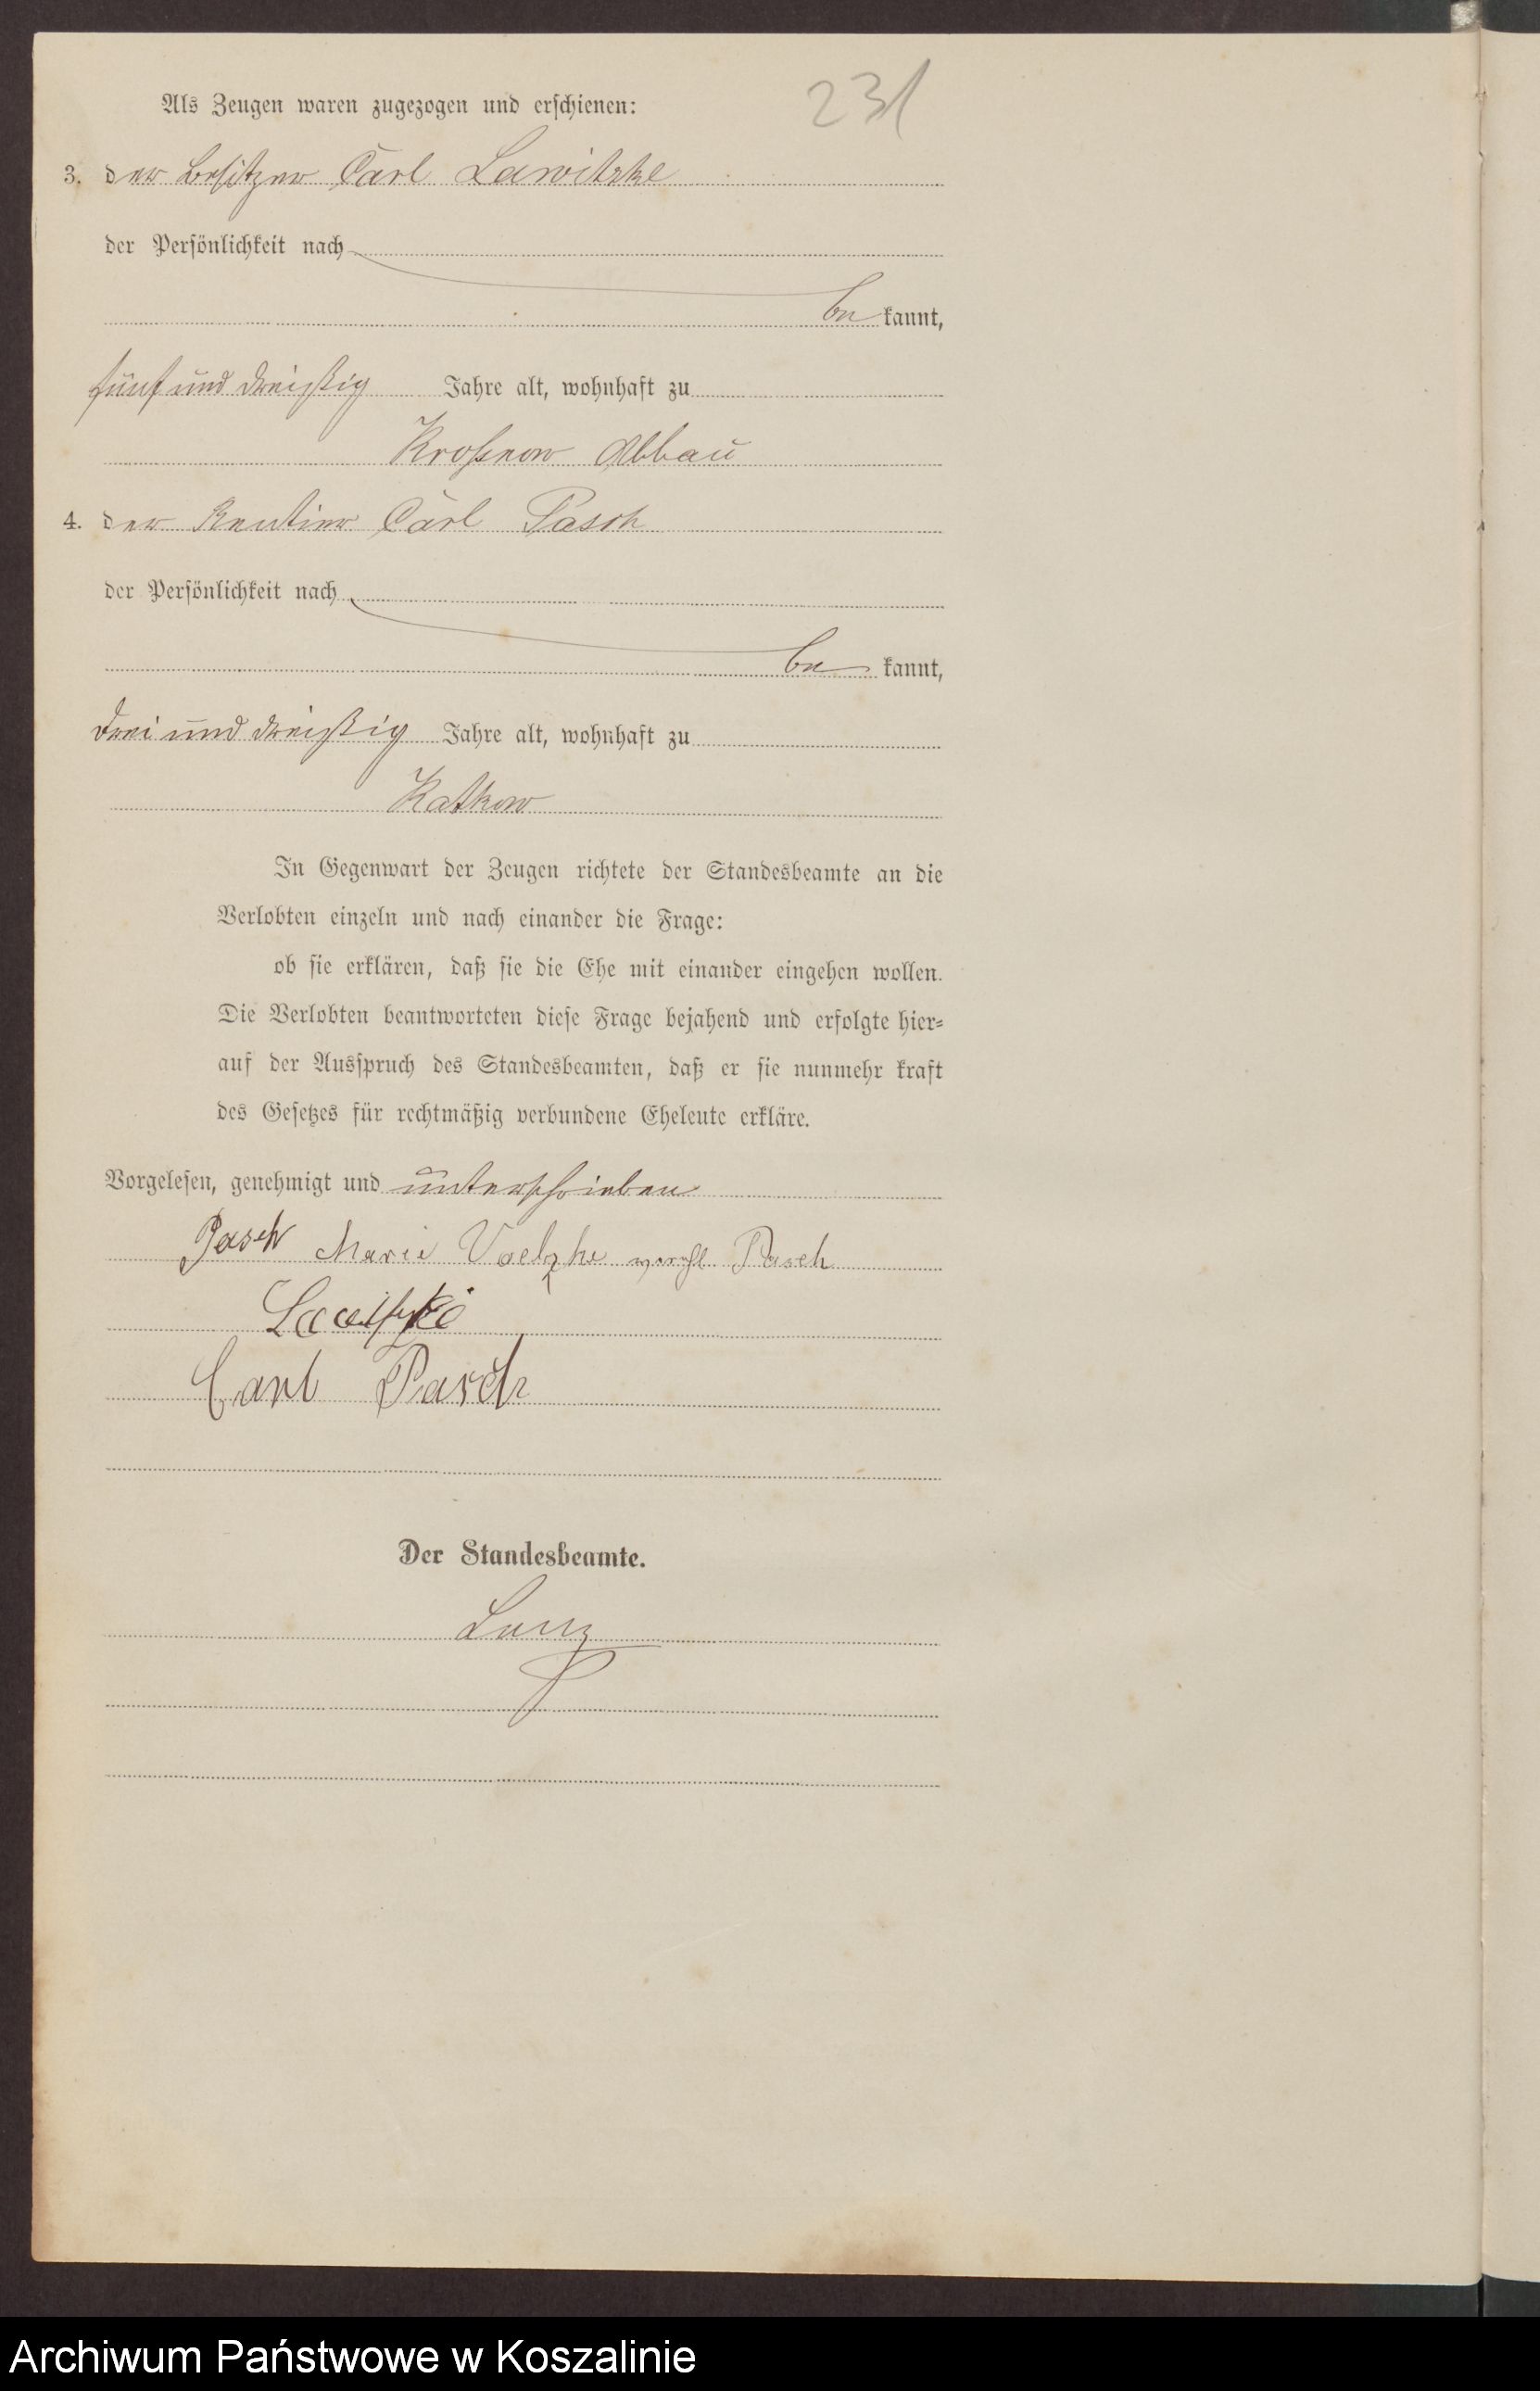 231
Als Zeugen waren zugezogen und erschienen:
3. der Besitzer Carl Lawitzke
der Persönlichkeit nach
be kannt,
fünf und dreißig Jahre alt, wohnhaft zu
Kroßnow Abbau
4. der Rentier Carl Pasch
der Persönlichkeit nach
be kannt,
drei und dreißig Jahre alt, wohnhaft zu
Katkow
In Gegenwart der Zeugen richtete der Standesbeamte an die
Verlobten einzeln und nach einander die Frage:
ob sie erklären, daß sie die Ehe mit einander eingehen wollen.
Die Verlobten beantworteten diese Frage bejahend und erfolgte hier-
auf der Ausspruch des Standesbeamten, daß er sie nunmehr kraft
des Gesetzes für rechtmäßig verbundene Eheleute erkläre.
Vorgelesen, genehmigt und unterschrieben
Pasch Marie Voelzke verehl Pasch
Lawitzke
Carl Pasch
Der Standesbeamte.
Archiwum Państwowe w Koszalinie